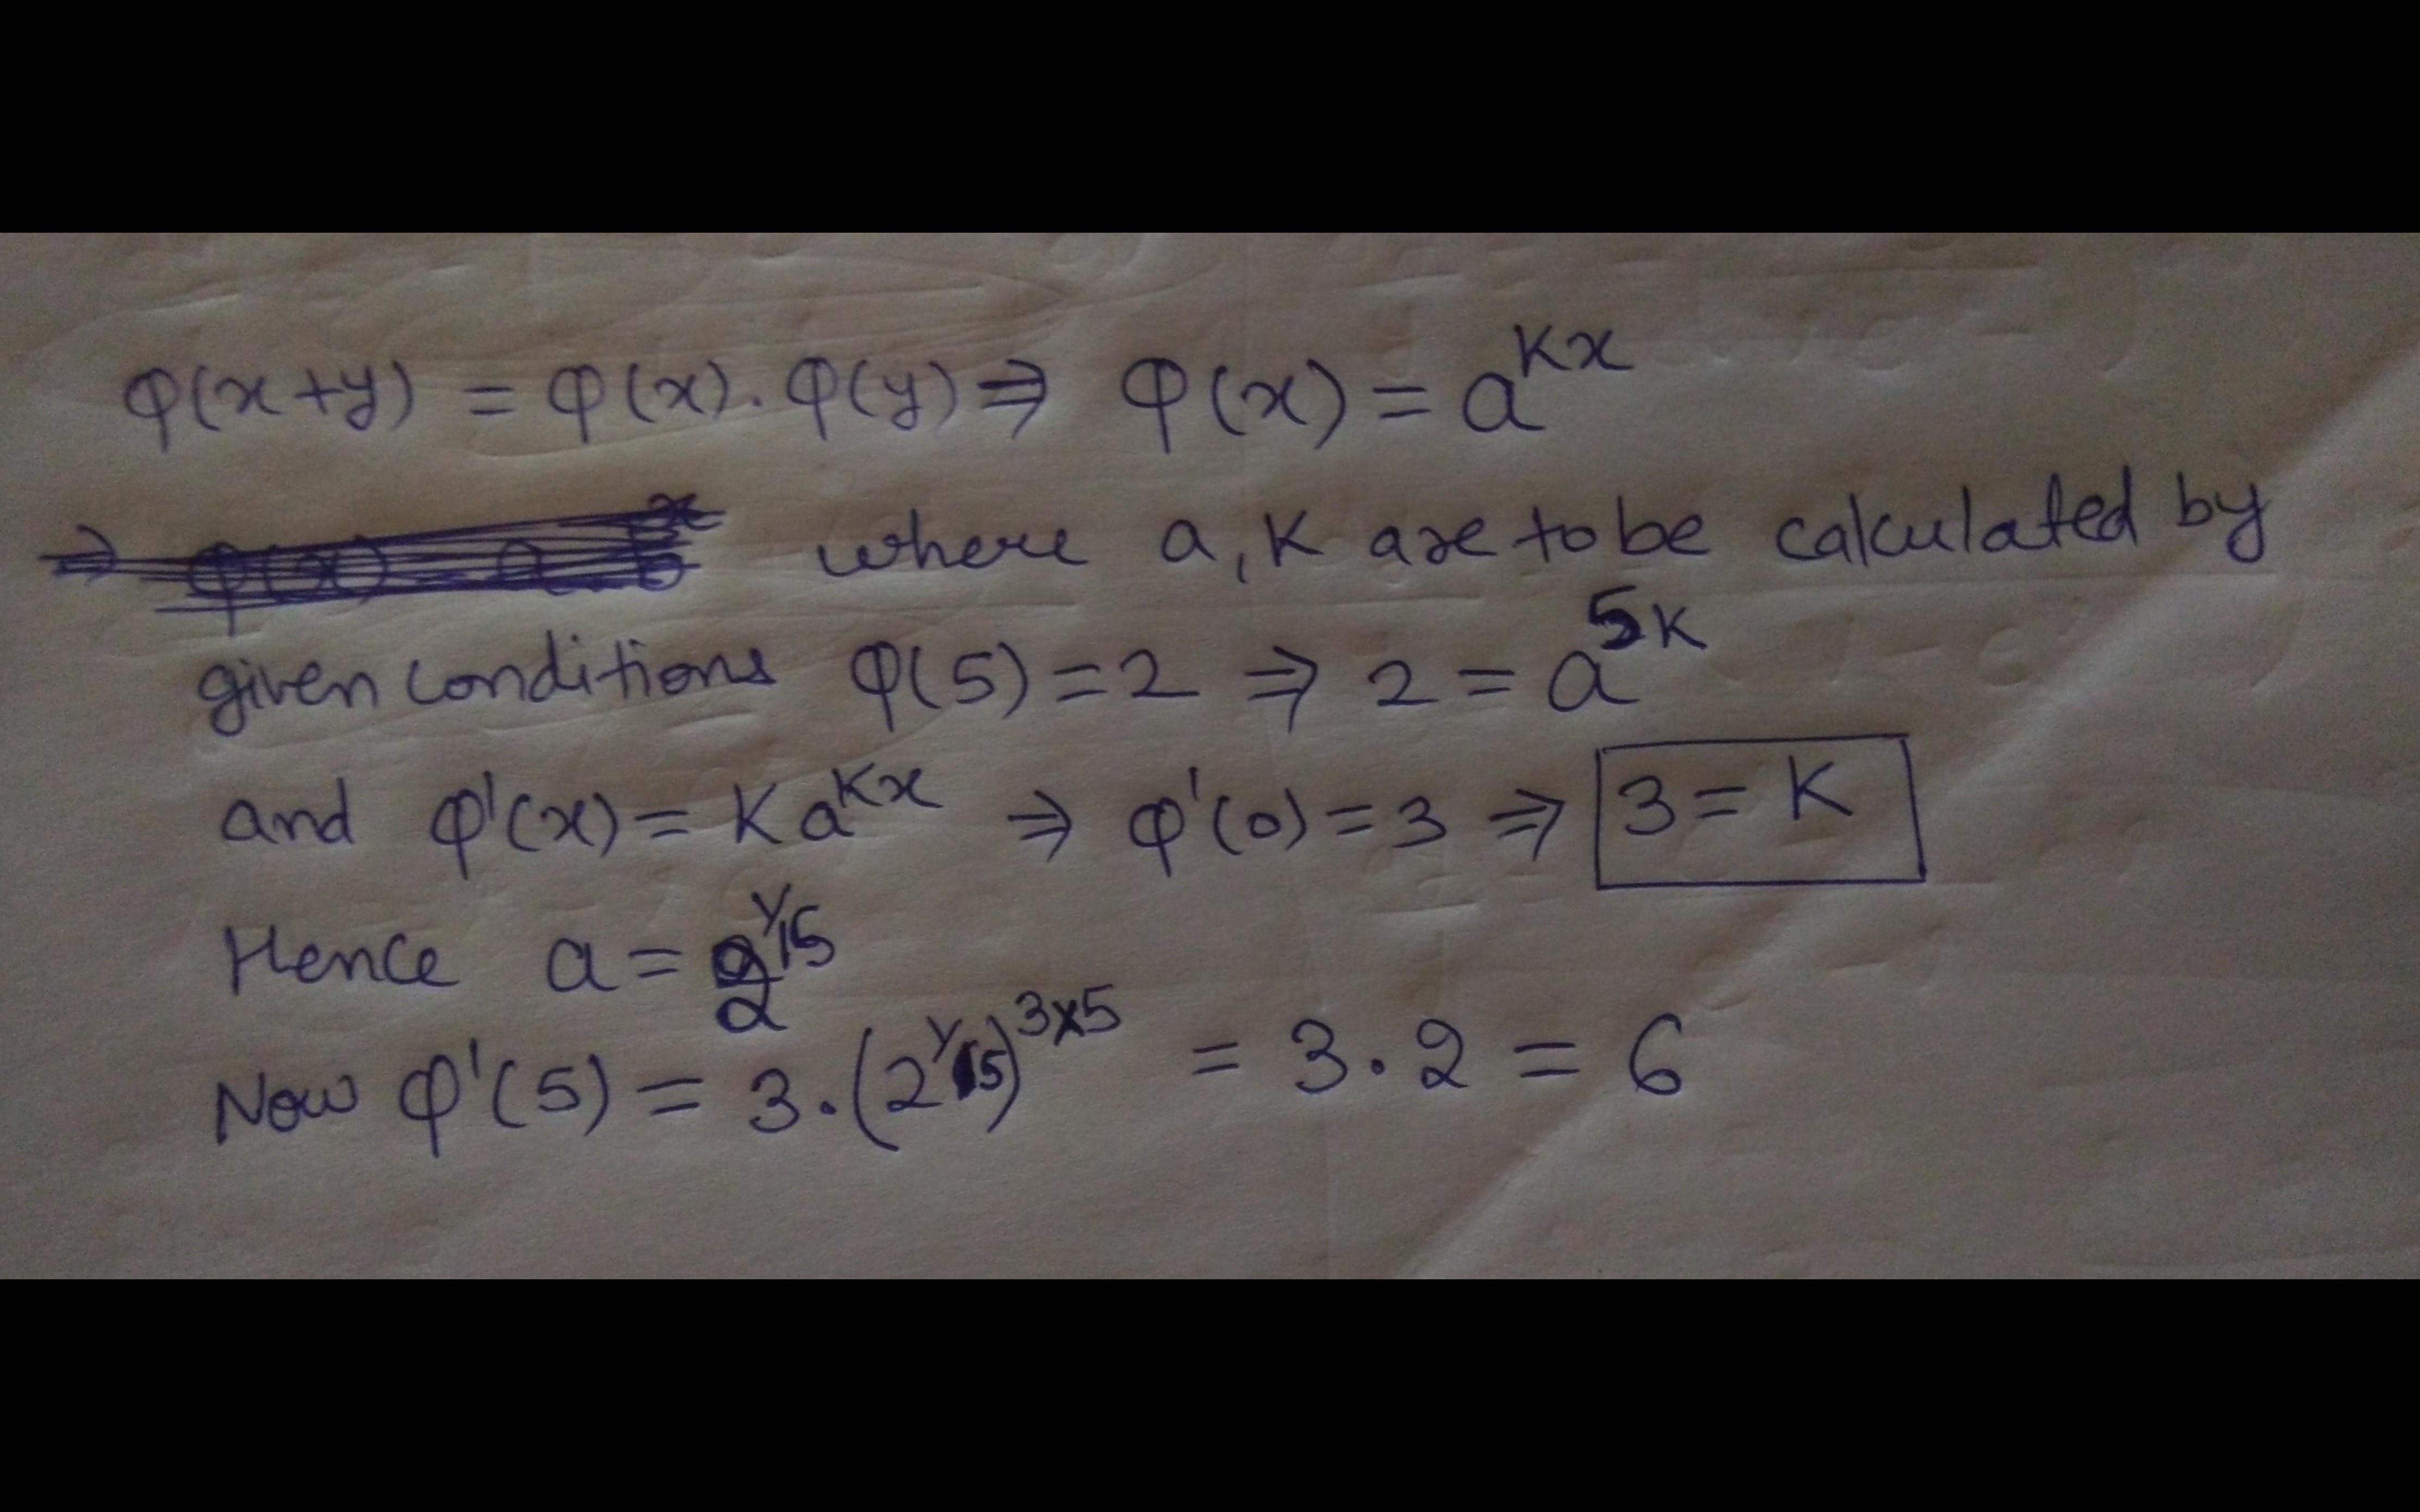 φ(x+y) = φ(x).φ(y) ⇒ φ(x) = a^{Kx}
where a, K are to be calculated by
given conditions φ(5) = 2 ⇒ 2 = a^{5K}
and φ'(x) = K a^{Kx} ⇒ φ'(0) = 3 ⇒ 3 = K
Hence a = 2^{1/15}
Now φ'(5) = 3.(2^{1/15})^{3×5} = 3.2 = 6